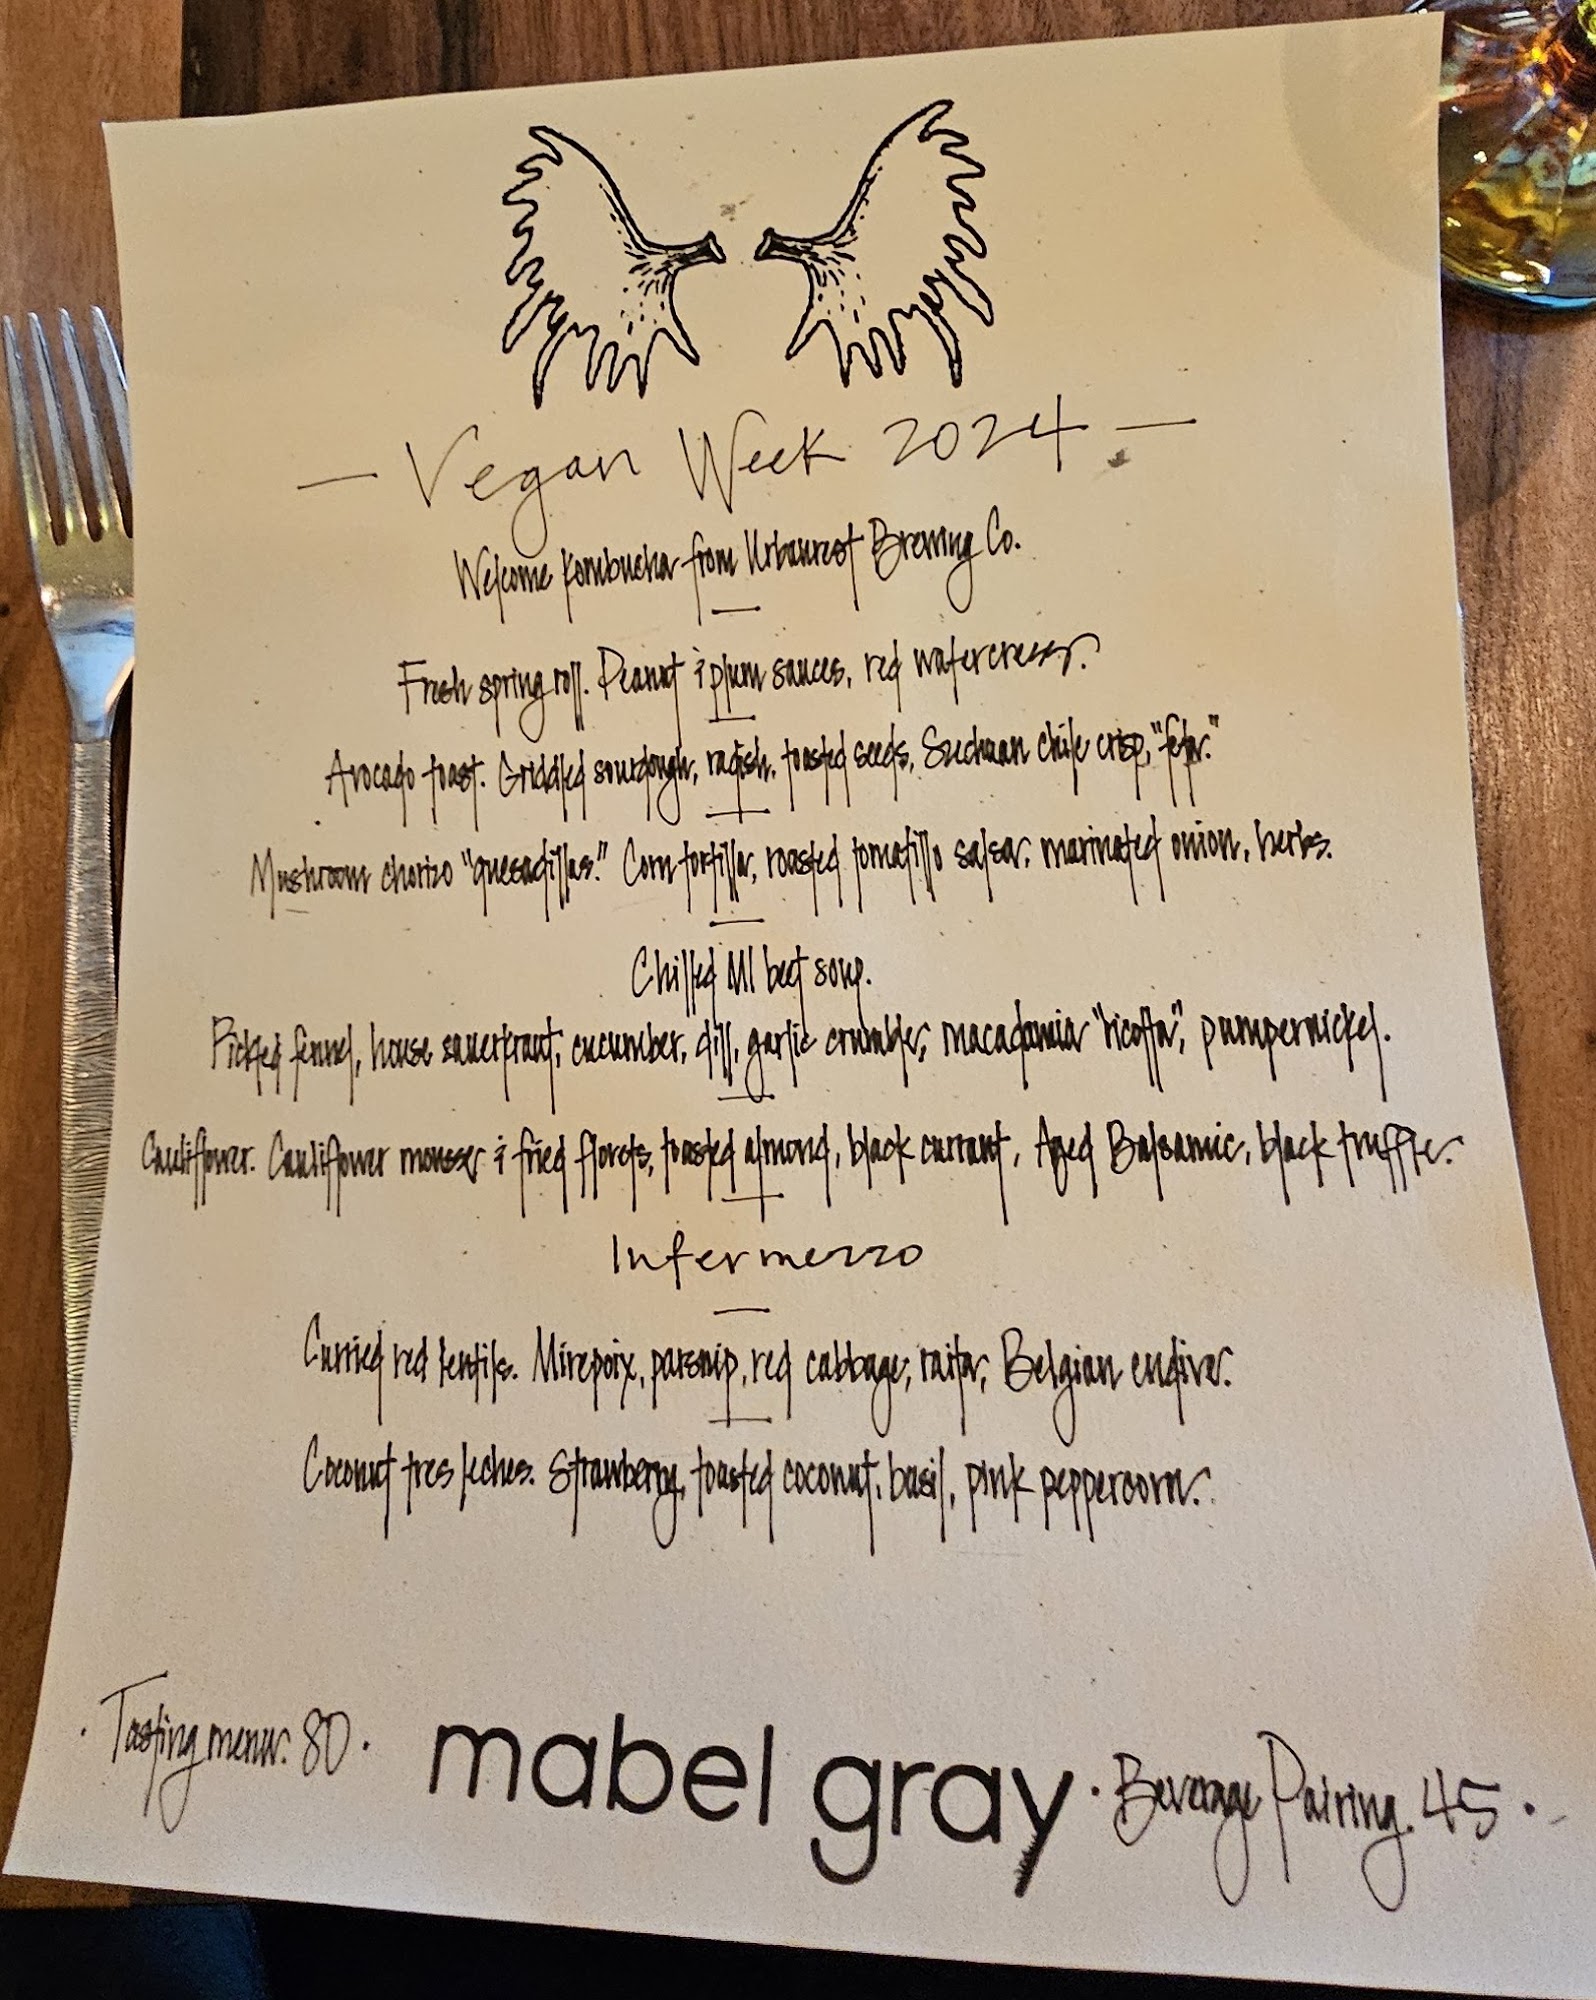 — Vegan Week 2024 —
Welcome kombucha from Urbanrest Brewing Co.
Fresh spring roll. Peanut & plum sauces, red watercress.
Avocado toast. Griddled sourdough, radish, toasted seeds, Szechuan chile crisp, "feta."
Mushroom chorizo "quesadillas." Corn tortilla, roasted tomatillo salsa, marinated onion, herbs.
Chilled MI beet soup.
Pickled fennel, house sauerkraut, cucumber, dill, garlic crumble, macadamia "ricotta", pumpernickel.
Cauliflower. Cauliflower mousse & fried florets, toasted almond, black currant, Aged Balsamic, black truffle.
Intermezzo
Curried red lentils. Mirepoix, parsnip, red cabbage, raita, Belgian endive.
Coconut tres leches. Strawberry, toasted coconut, basil, pink peppercorn.
· Tasting menu. 80 · mabel gray · Beverage Pairing. 45 ·